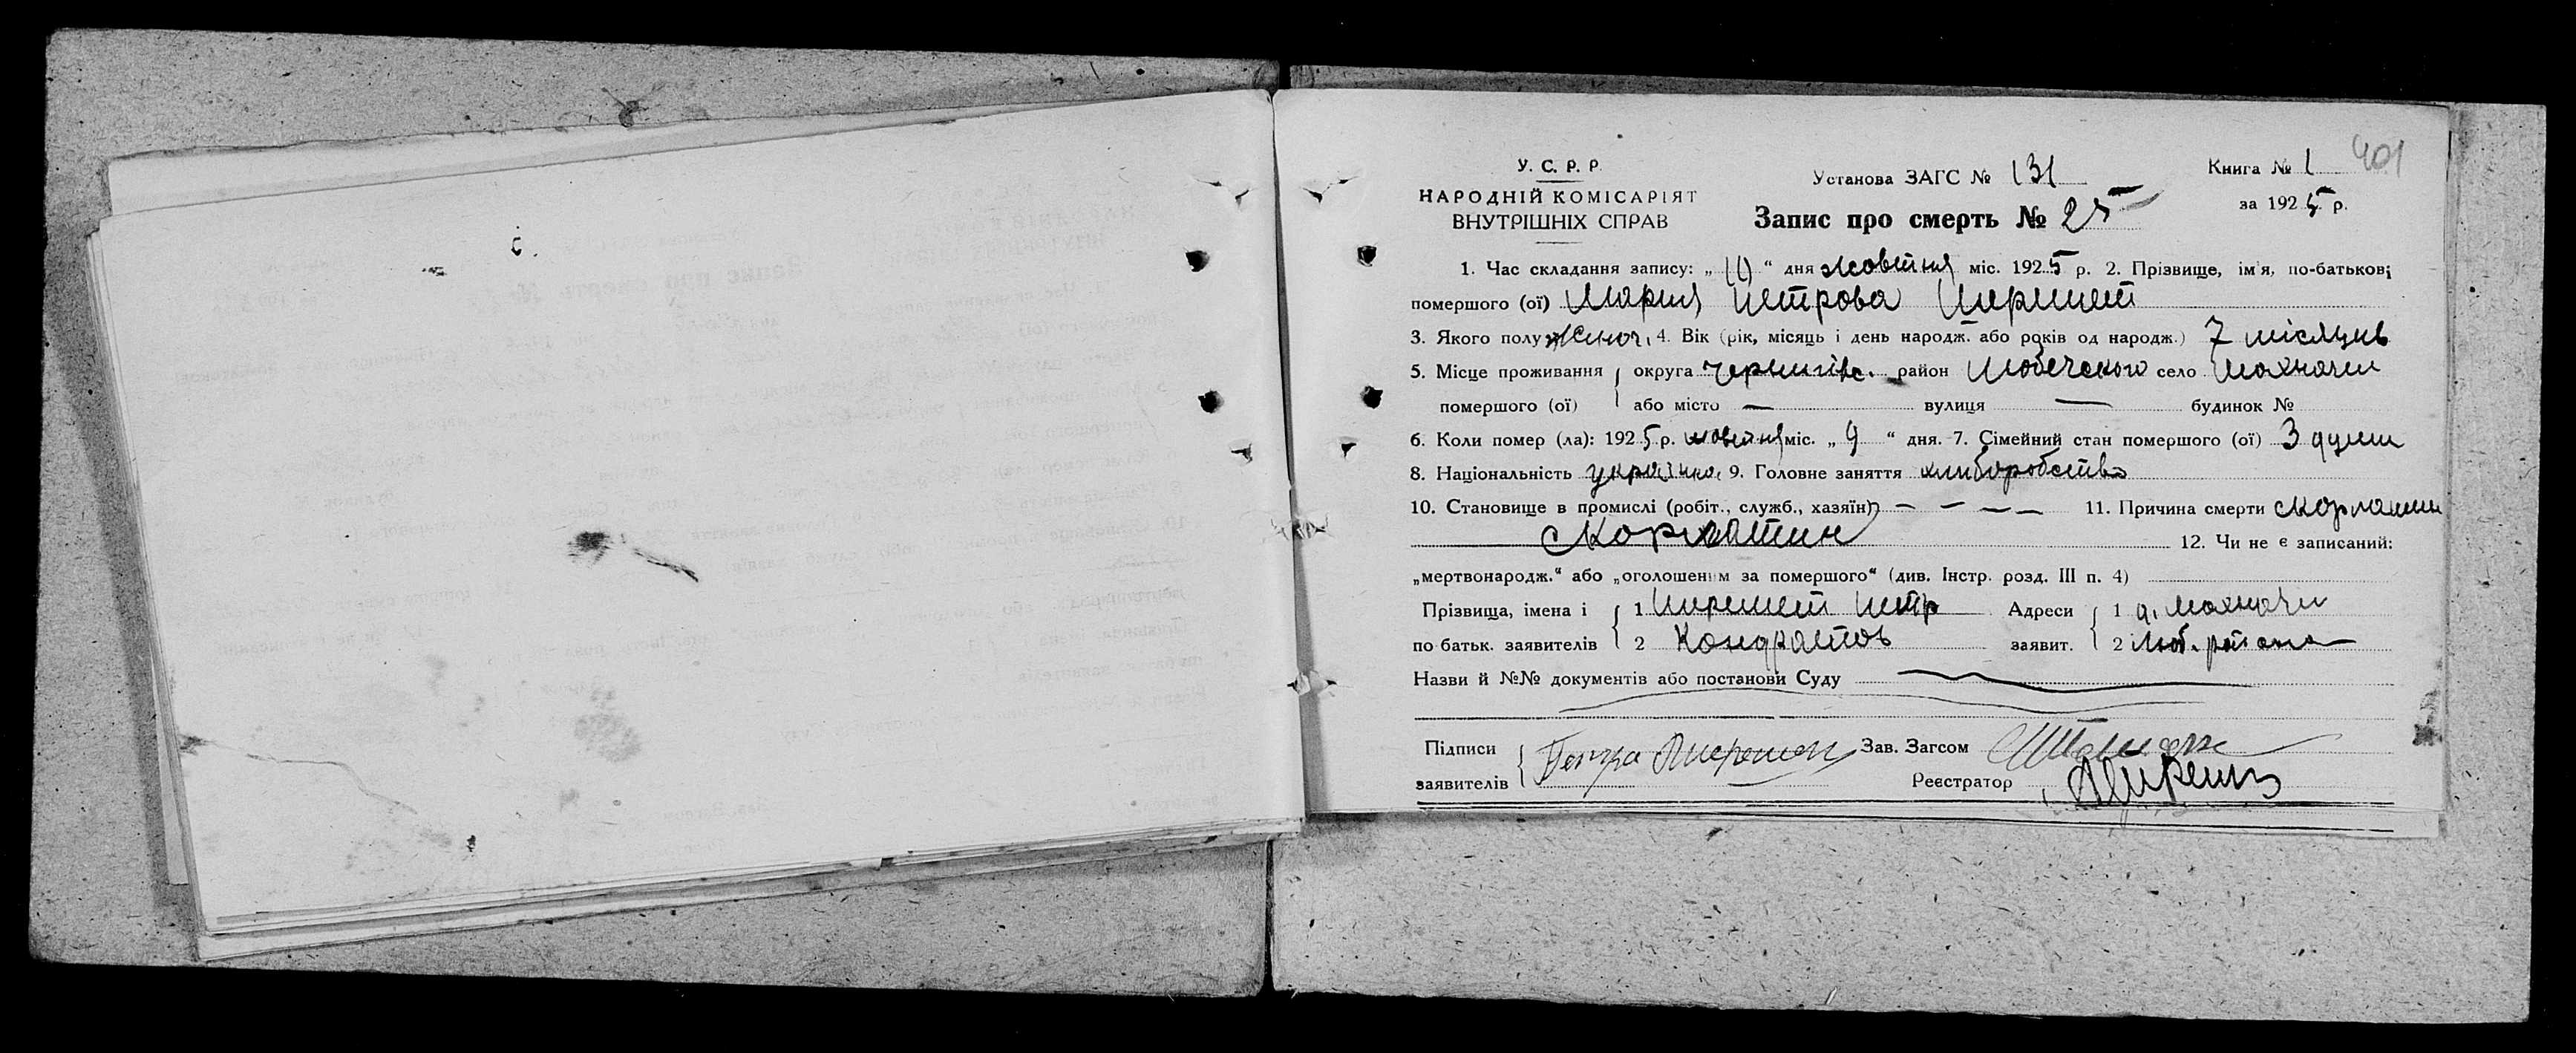 401
У. С. Р. Р.
НАРОДНІЙ КОМІСАРІЯТ
ВНУТРІШНІХ СПРАВ
Установа ЗАГС № 131
Книга № 1
за 1925 р.
Запис про смерть № 25
1. Час складання запису: „ “ дня жовтня міс. 1925 р. 2. Прізвище, ім'я, по-батькові
помершого (ої) Мария Петрова
3. Якого полу женоч. 4. Вік (рік, місяць і день народж. або років од народж.) 7 місяців
5. Місце проживання округа Чернигівс. район Любечского село Махначи
помершого (ої) або місто — вулиця — будинок №
6. Коли помер (ла): 1925 р. жовтня міс. „ 9 “ дня. 7. Сімейний стан помершого (ої) 3 души
8. Національність українка 9. Головне заняття хлиборобство
10. Становище в промислі (робіт., служб., хазяїн) — — — — 11. Причина смерти скорлатин
скорлатин 12. Чи не є записаний:
„мертвонародж.“ або „оголошеним за помершого“ (див. Інстр. розд. III п. 4)
Прізвища, імена і 1 Петр Адреси 1 д. Махначи
по батьк. заявителів 2 Кондратов заявит. 2 Люб. района
Назви й №№ документів або постанови Суду —
Підписи Петро Зав. Загсом
заявителів Реєстратор